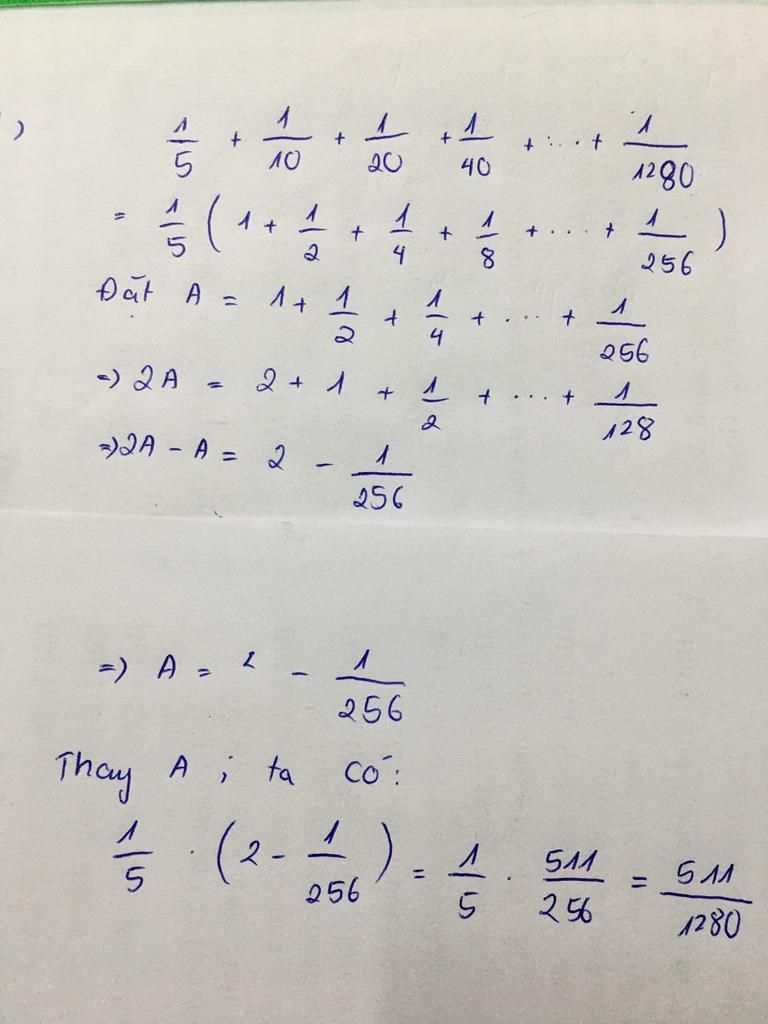 ) 1/5 + 1/10 + 1/20 + 1/40 + ... + 1/1280
= 1/5 ( 1 + 1/2 + 1/4 + 1/8 + ... + 1/256 )
Đặt A = 1 + 1/2 + 1/4 + ... + 1/256
=) 2A = 2 + 1 + 1/2 + ... + 1/128
=) 2A - A = 2 - 1/256
=) A = 2 - 1/256
Thay A ; ta có:
1/5 . ( 2 - 1/256 ) = 1/5 . 511/256 = 511/1280